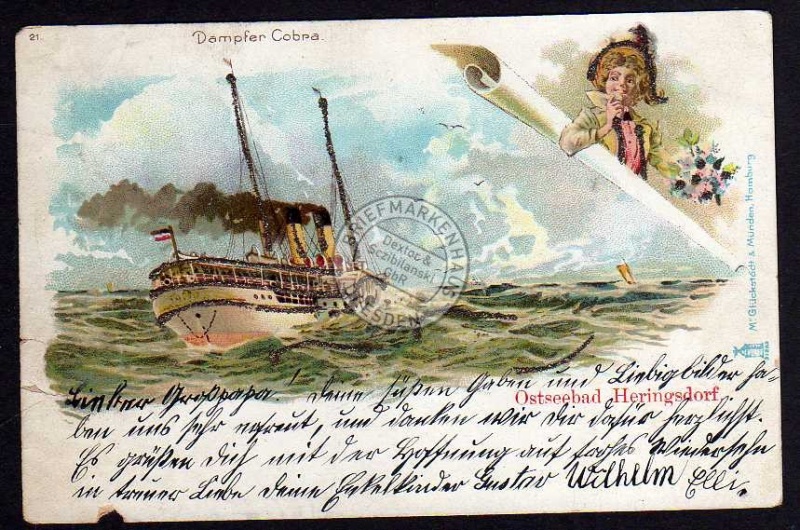 21.
Dampfer Cobra.
BRIEFMARKENHAUS
Dextor &
Szibilanski
GbR
DRESDEN
Mr Glückstadt & Münden, Hamburg
Ostseebad Heringsdorf
Lieber Großpapa! Deine süßen Gaben und Liebigbilder ha-
ben uns sehr erfreut, und danken wir Dir dafür herzlichst.
Es grüßen Dich mit der Hoffnung auf frohes Wiedersehn
in treuer Liebe deine Enkelkinder Gustav Wilhelm Elli.